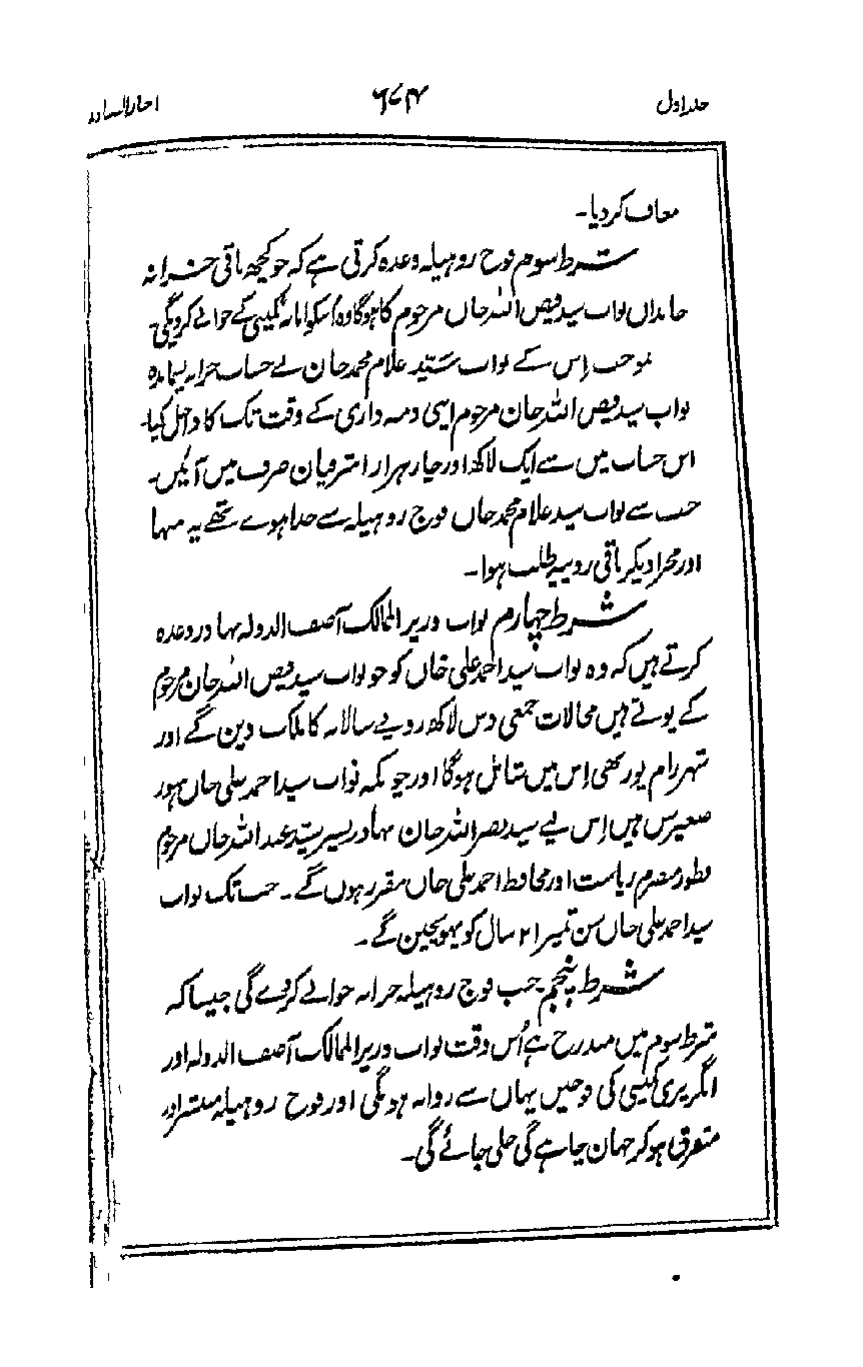 جلد اول ۶۷۴ اخبار الصنادید
معاف کر دیا۔
شرط سوم فوج روہیلہ وعدہ کرتی ہے کہ جو کچھ باقی خزانہ
خاندان نواب سید فیض اللہ خاں مرحوم کا ہوگا وہ اُسکو امانۃً کمپنی کے حوالے کر دیگی۔
بموجب اِس کے نواب سَیّد غلام محمد خان نے حساب خزانہ پسماندہ
نواب سید فیض اللہ خان مرحوم اپنی ذمہ داری کے وقت تک کا داخل کیا۔
اس حساب میں سے ایک لاکھ اور چار ہزار اشرفیان صرف میں آئیں۔
جب سے نواب سید غلام محمد خاں فوج روہیلہ سے جدا ہوے تھے یہ منہا
اور مجرا دیکر باقی روپیہ طلب ہوا۔
شرط چہارم نواب وزیر الممالک آصف الدولہ بہادر وعدہ
کرتے ہیں کہ وہ نواب سید احمد علی خاں کو جو نواب سید فیض اللہ خان مرحوم
کے پوتے ہیں محالات جمعی دس لاکھ روپیے سالانہ کا ملک دین گے اور
شہر رام پور بھی اِس میں شامل ہوگا اور چونکہ نواب سید احمد علی خاں ہنوز
صغیر سن ہیں اِس لیے سید نصر اللہ خان بہادر پسر سیّد عبد اللہ خاں مرحوم
بطور منصرم ریاست اور محافظ احمد علی خاں مقرر ہوں گے۔ جب تک نواب
سید احمد علی خاں سن تمیز ۲۱ سال کو پہونچین گے۔
شرط پنجم جب فوج روہیلہ خزانہ حوالے کر دے گی جیسا کہ
شرط سوم میں مندرج ہے اُس وقت نواب وزیر الممالک آصف الدولہ اور
انگریزی کمپنی کی فوجیں یہاں سے روانہ ہونگی اور فوج روہیلہ منتشر اور
متفرق ہو کر جہان چاہے گی چلی جائے گی۔